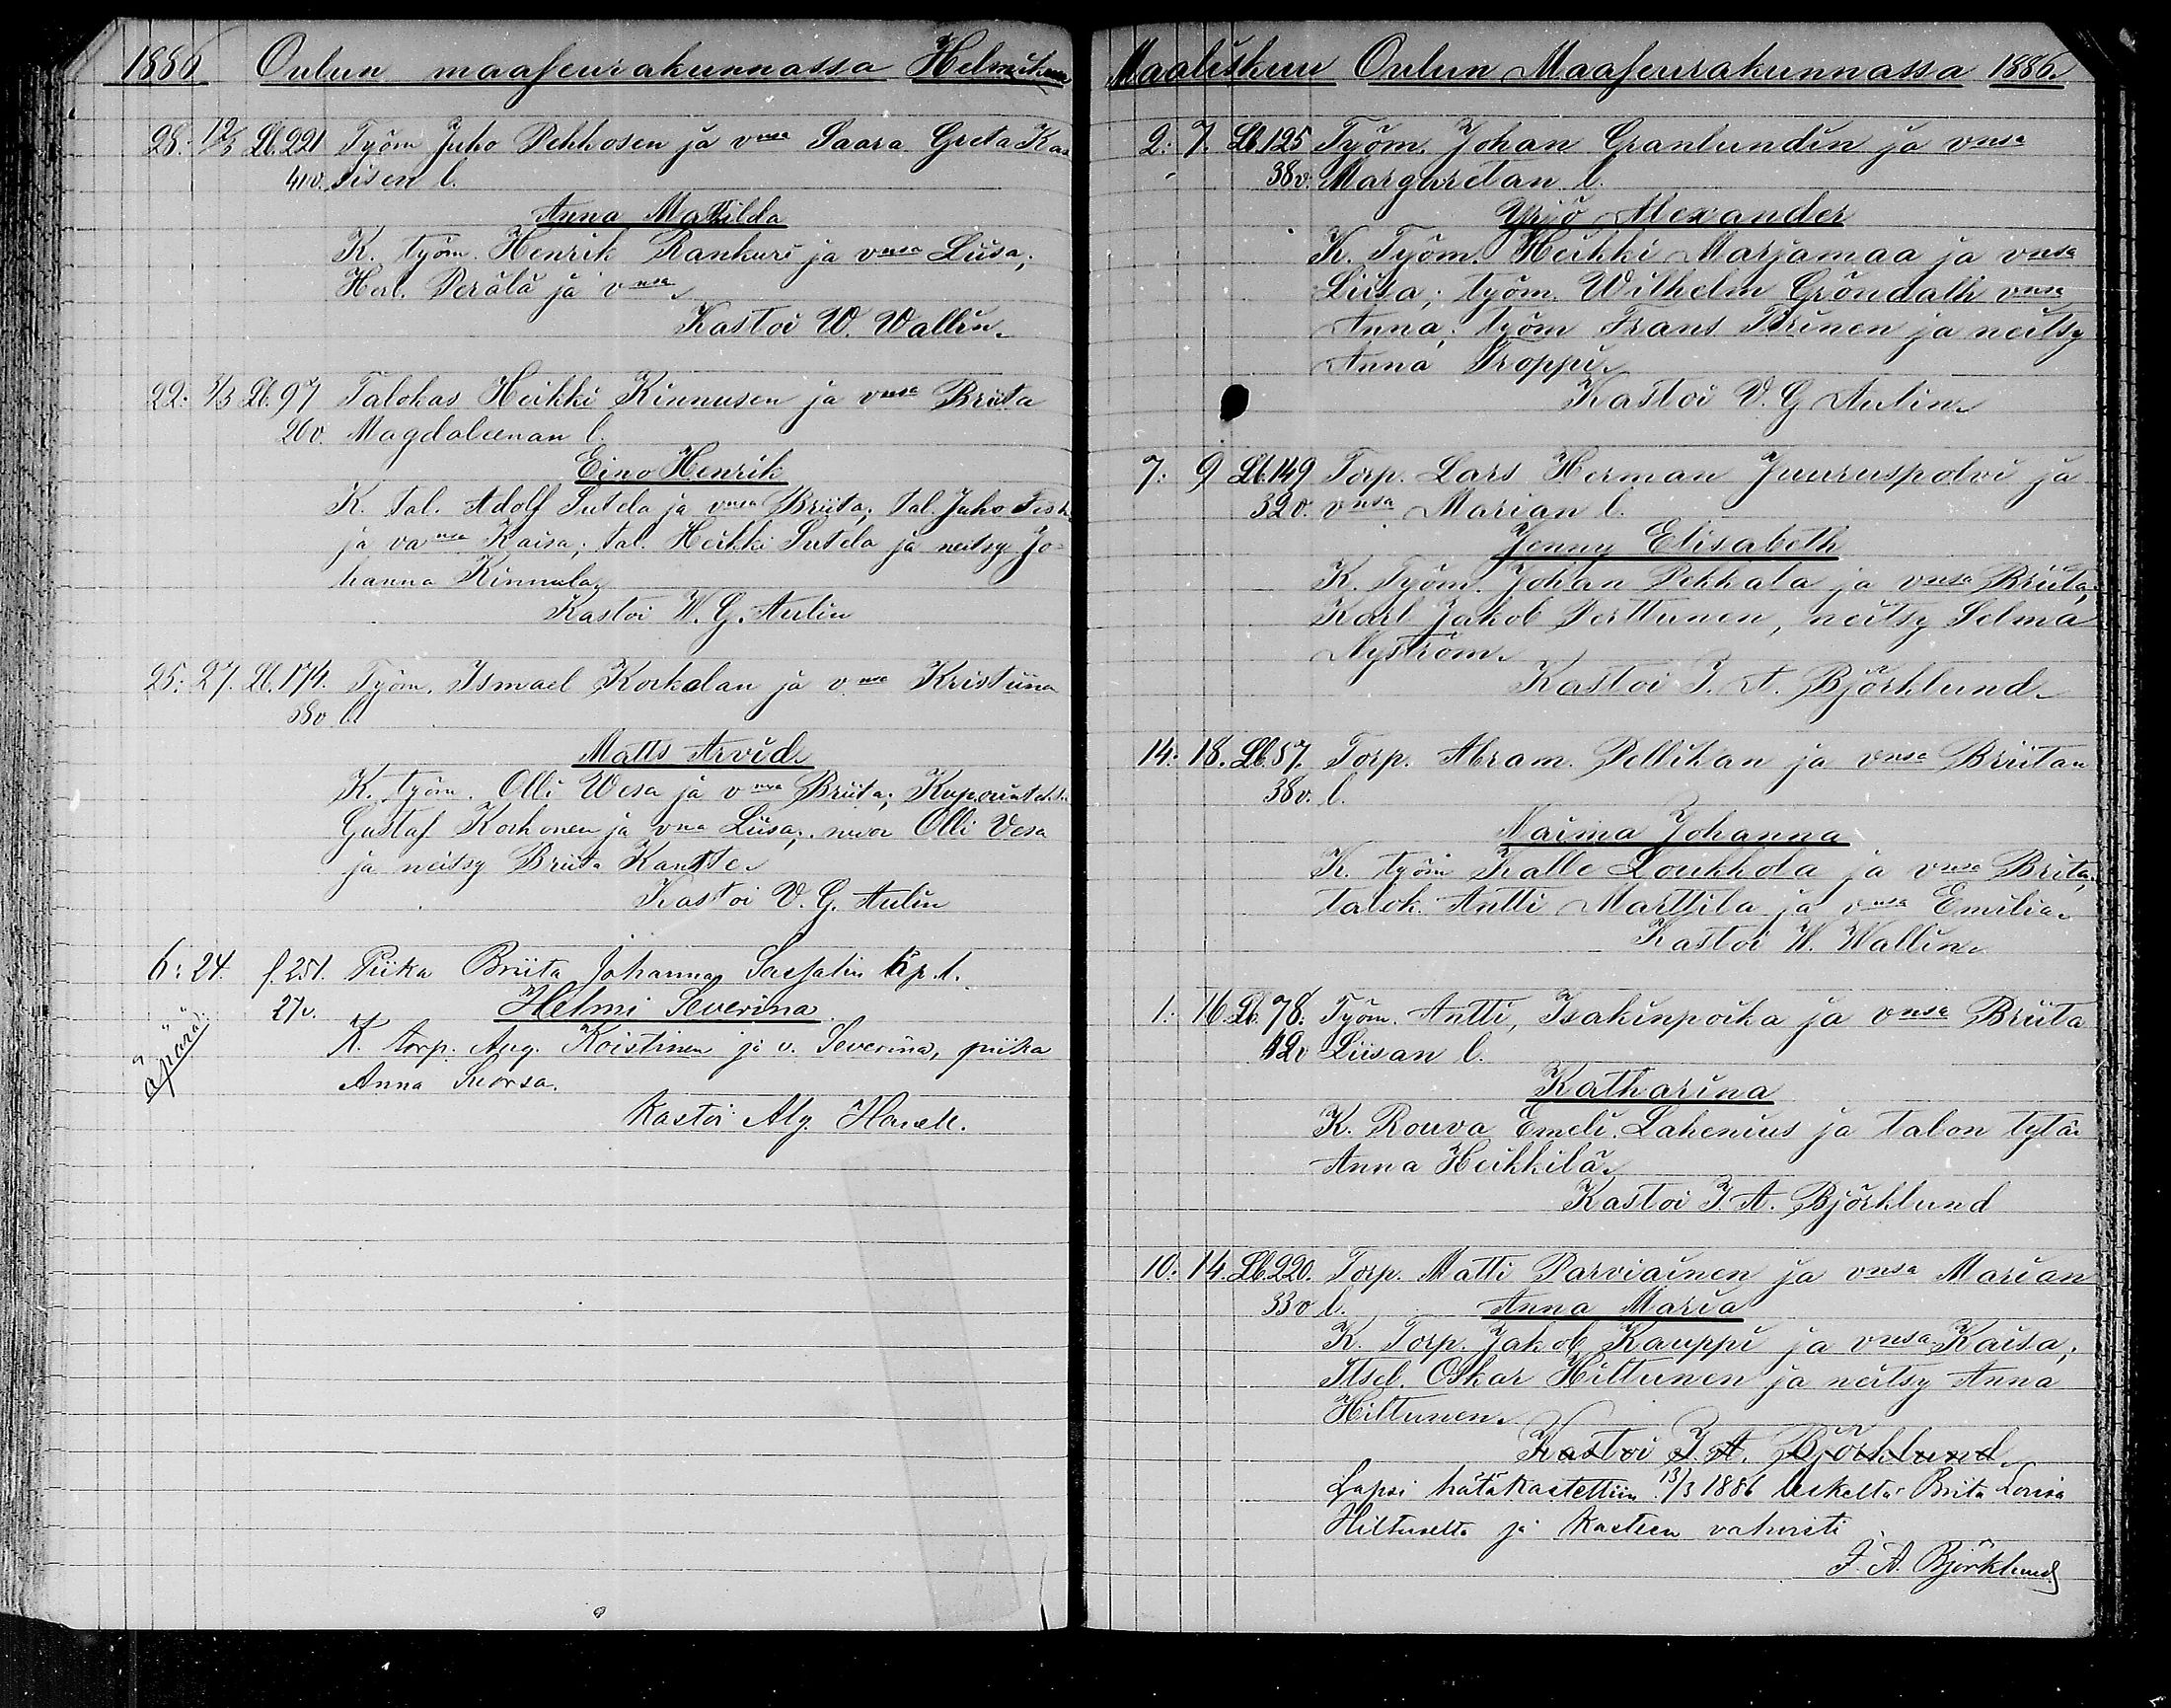 1886 Oulun maaseurakunnassa Helmikuu
28. 12/3 Lb. 221 Työm Juho Pehkosen ja vnsa Saara Greta Kaa
41 v. sisen l.
Anna Matilda
K. työm. Henrik Rankuri ja vnsa Liisa;
Herl. Perälä ja vnsa
Kastoi W. Wallin.
22. 3/3 Lb. 97 Talokas Heikki Kinnusen ja vnsa Briita
20 v. Magdaleenan l.
Eino Henrik
K. tal. Adolf Sutela ja vnsa Briita; tal. Juho
ja vansa Kaisa; tal. Heikki Sutela ja neitsy Jo-
hanna Kinnula.
Kastoi W. G. Aulin
25: 27. Lb. 174. Työm. Ismael Korkalan ja v.nsa Kristiina
38 v l.
Matts Arvid.
K. työm. Olli Wesa ja vnsa Briita;
Gustaf Korhonen ja vna Liisa; nuor Olli Vesa
ja neitsy Briita Kantte.
Kastoi V. G. Aulin
6: 24. f. 251. Piika Briita Johanna äp. l.
27 v. Helmi Severina
äpärä.
K. torp. Aug. Koistinen ja v. Severina, piika
Anna Suorsa.
Kastoi Alg.
Maaliskuu Oulun Maaseurakunnassa 1886.
2: 7. Lb. 125 Työm. Johan Granlundin ja vnsa
38 v. Margaretan l.
Yrjö Alexander
K. Työm. Heikki Marjamaa ja vnsa
Liisa; työm. Wilhelm Gröndahl vnsa
Anna; työm Frans Pirinen ja neitsy
Anna Troppi.
Kastoi V. G Aulin.
7: 9 Lb. 149 Torp. Lars Herman Juuruspolvi ja
32 v. vnsa Marian l.
Jenny Elisabeth
K. Työm. Johan Pekkala ja vnsa Briita,
Karl Jakob Perttunen, neitsy Selma
Nyström.
Kastoi J. A. Björklund.
14: 18. Lb. 57. Torp. Abram. Pellikan ja vnsa Briitan
38 v. l.
Naima Johanna
K. työm Kalle Loukkola ja vnsa Briita,
talok. Antti Marttila ja vnsa Emilia.
Kastoi W. Wallin.
1: 16. Lb. 78. Työm. Antti, Isakinpoika ja vnsa Briita
42 v Liisan l.
Katharina
K. Rouva Emeli. Lahenius ja talon tytär
Anna Heikkilä.
Kastoi J. A. Björklund
10: 14. Lb 220. Torp. Matti Parviainen ja vnsa Marian
33 v l. Anna Maria
K. Torp. Jakob Kauppi ja vnsa Kaisa;
Itsel. Oskar Hiltunen ja neitsy Anna
Hiltunen.
Kastoi J. A. Björklund.
Lapsi hätäkastettiin 13/3 1886 leskeltä Briita Lovisa
Hiltuselta ja kasteen vahvisti
J. A. Björklund